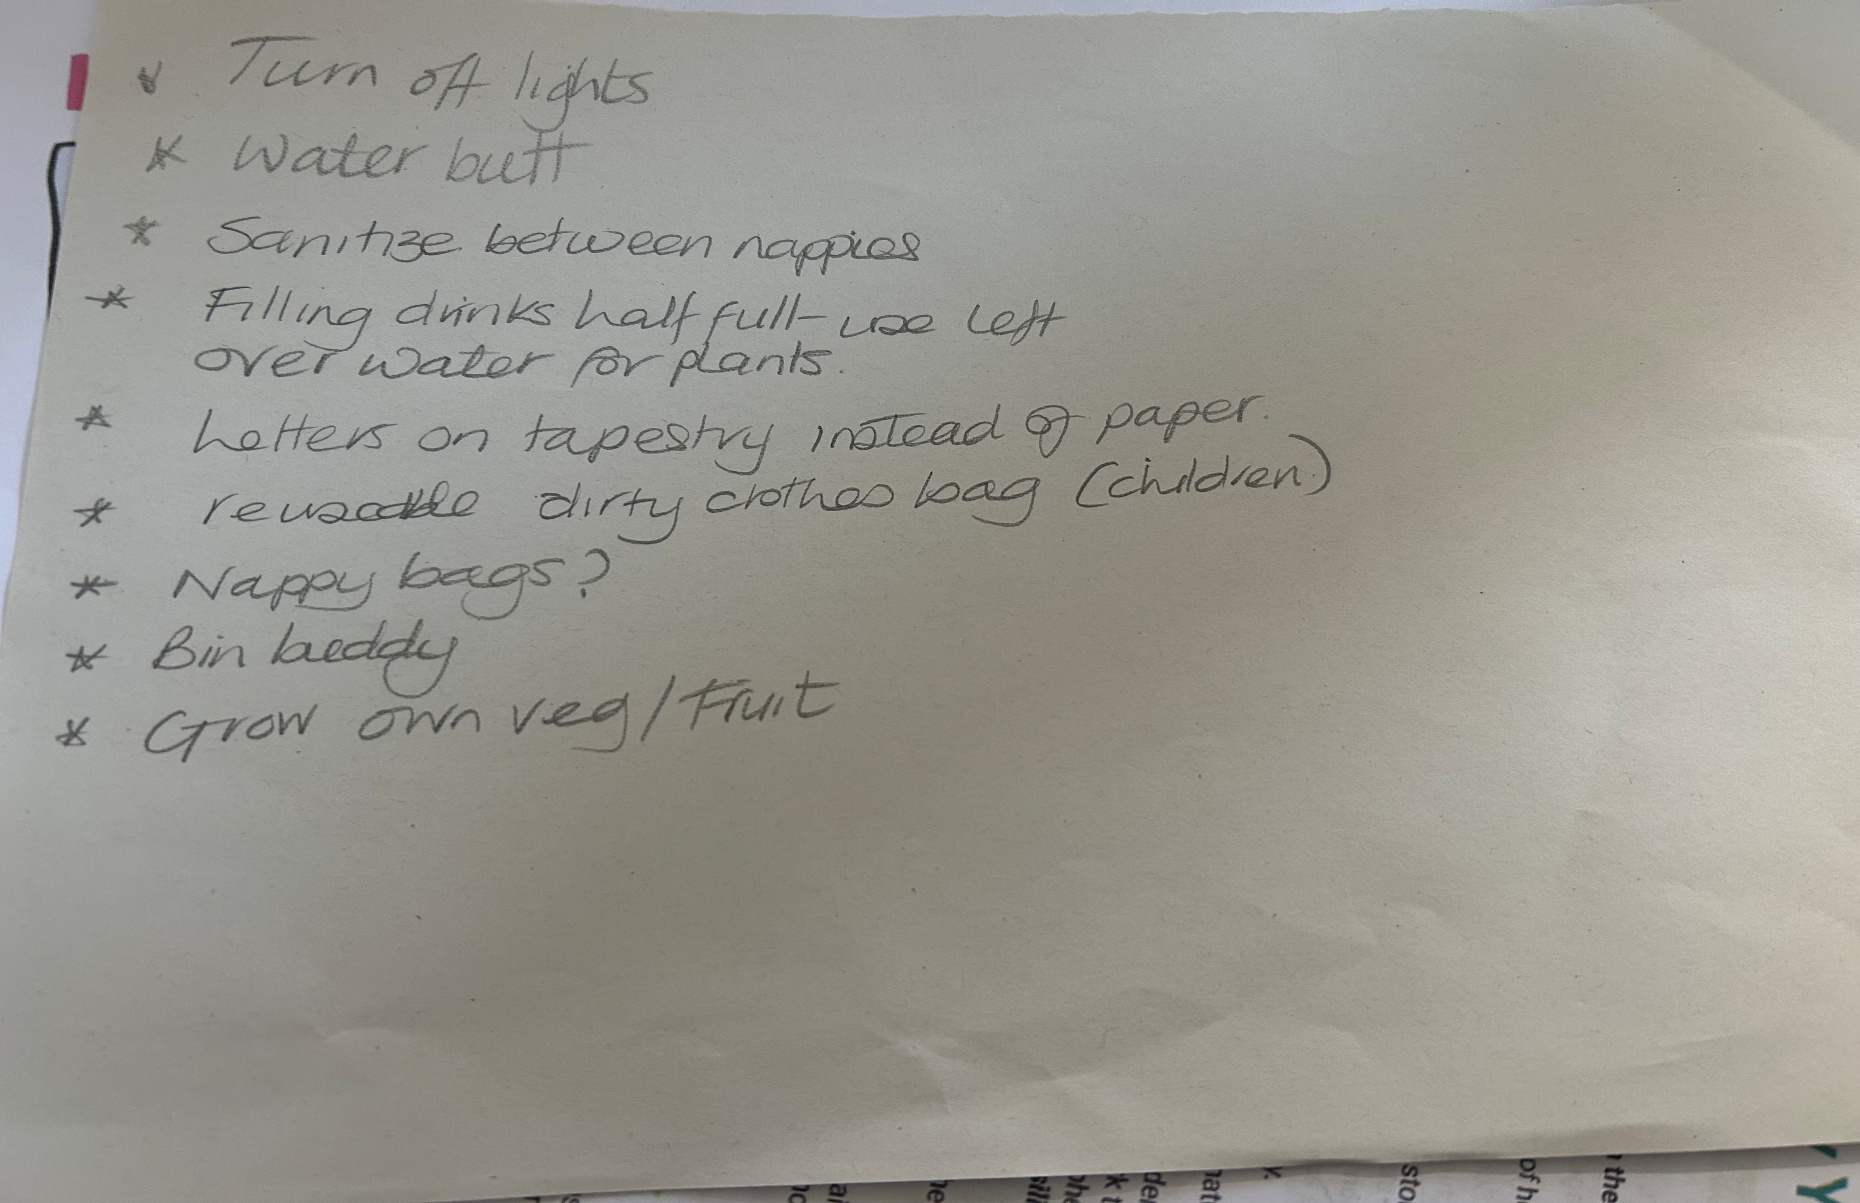 * Turn off lights
* Water butt
* Sanitize between nappies
* Filling drinks half full - use left
over water for plants.
* Letters on tapestry instead of paper.
* reuseable dirty clothes bag (children)
* Nappy bags?
* Bin buddy
* Grow own veg/Fruit